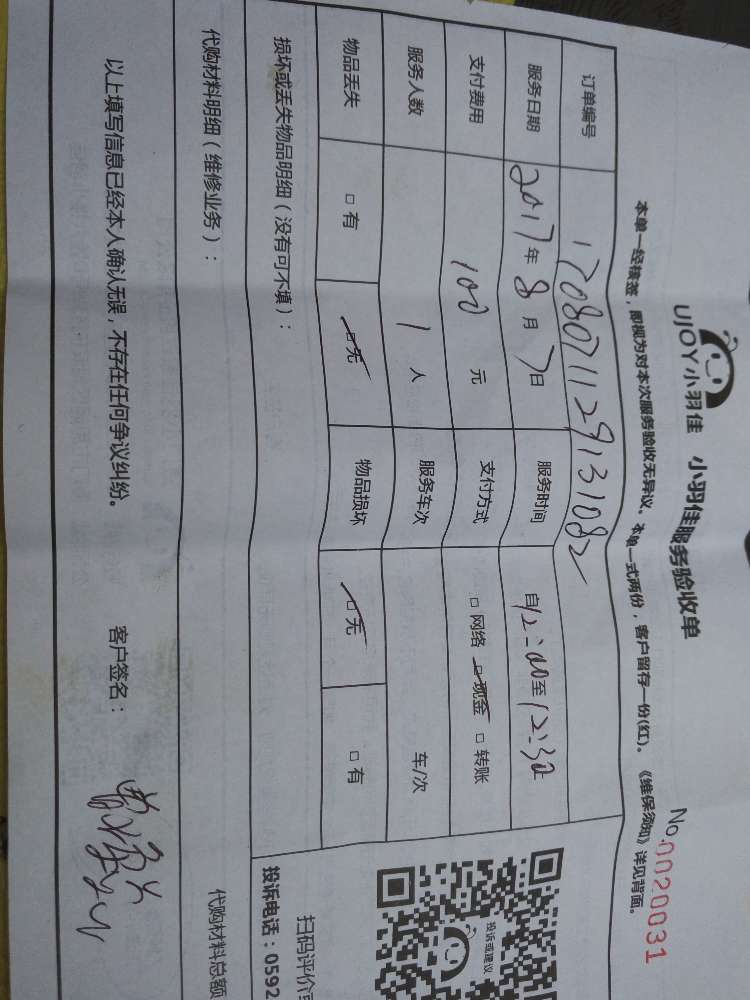 UJOY小羽佳 小羽佳服务验收单
No.0020031
本单一经核签，即视为对本次服务验收无异议。本单一式两份，客户留存一份(红)。《维保须知》详见背面。
订单编号 1708071129131082
服务日期 2017年8月7日 服务时间 自12:00至12:30
支付费用 100元 支付方式 □网络 □现金 □转账
服务人数 1人 服务车次 车/次
物品丢失 □有 □无 物品损坏 □无 □有
损坏或丢失物品明细（没有可不填）：
投诉或建议
扫码评价或
投诉电话：0592
代购材料明细（维修业务）：
代购材料总额
以上填写信息已经本人确认无误，不存在任何争议纠纷。 客户签名：